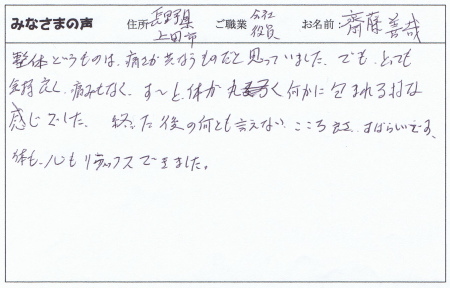 みなさまの声 住所 長野県上田市 ご職業 会社役員 お名前: 齋藤善哉
整体というものは、痛みが先なうものだと思っていました。でも、とても
気持良く、痛みもなく、すーと、体が丸く何かに包まれる様な
感じでした。 終った後の何とも言えない こころよさ、すばらいです。
体も、心もリラックスできました。